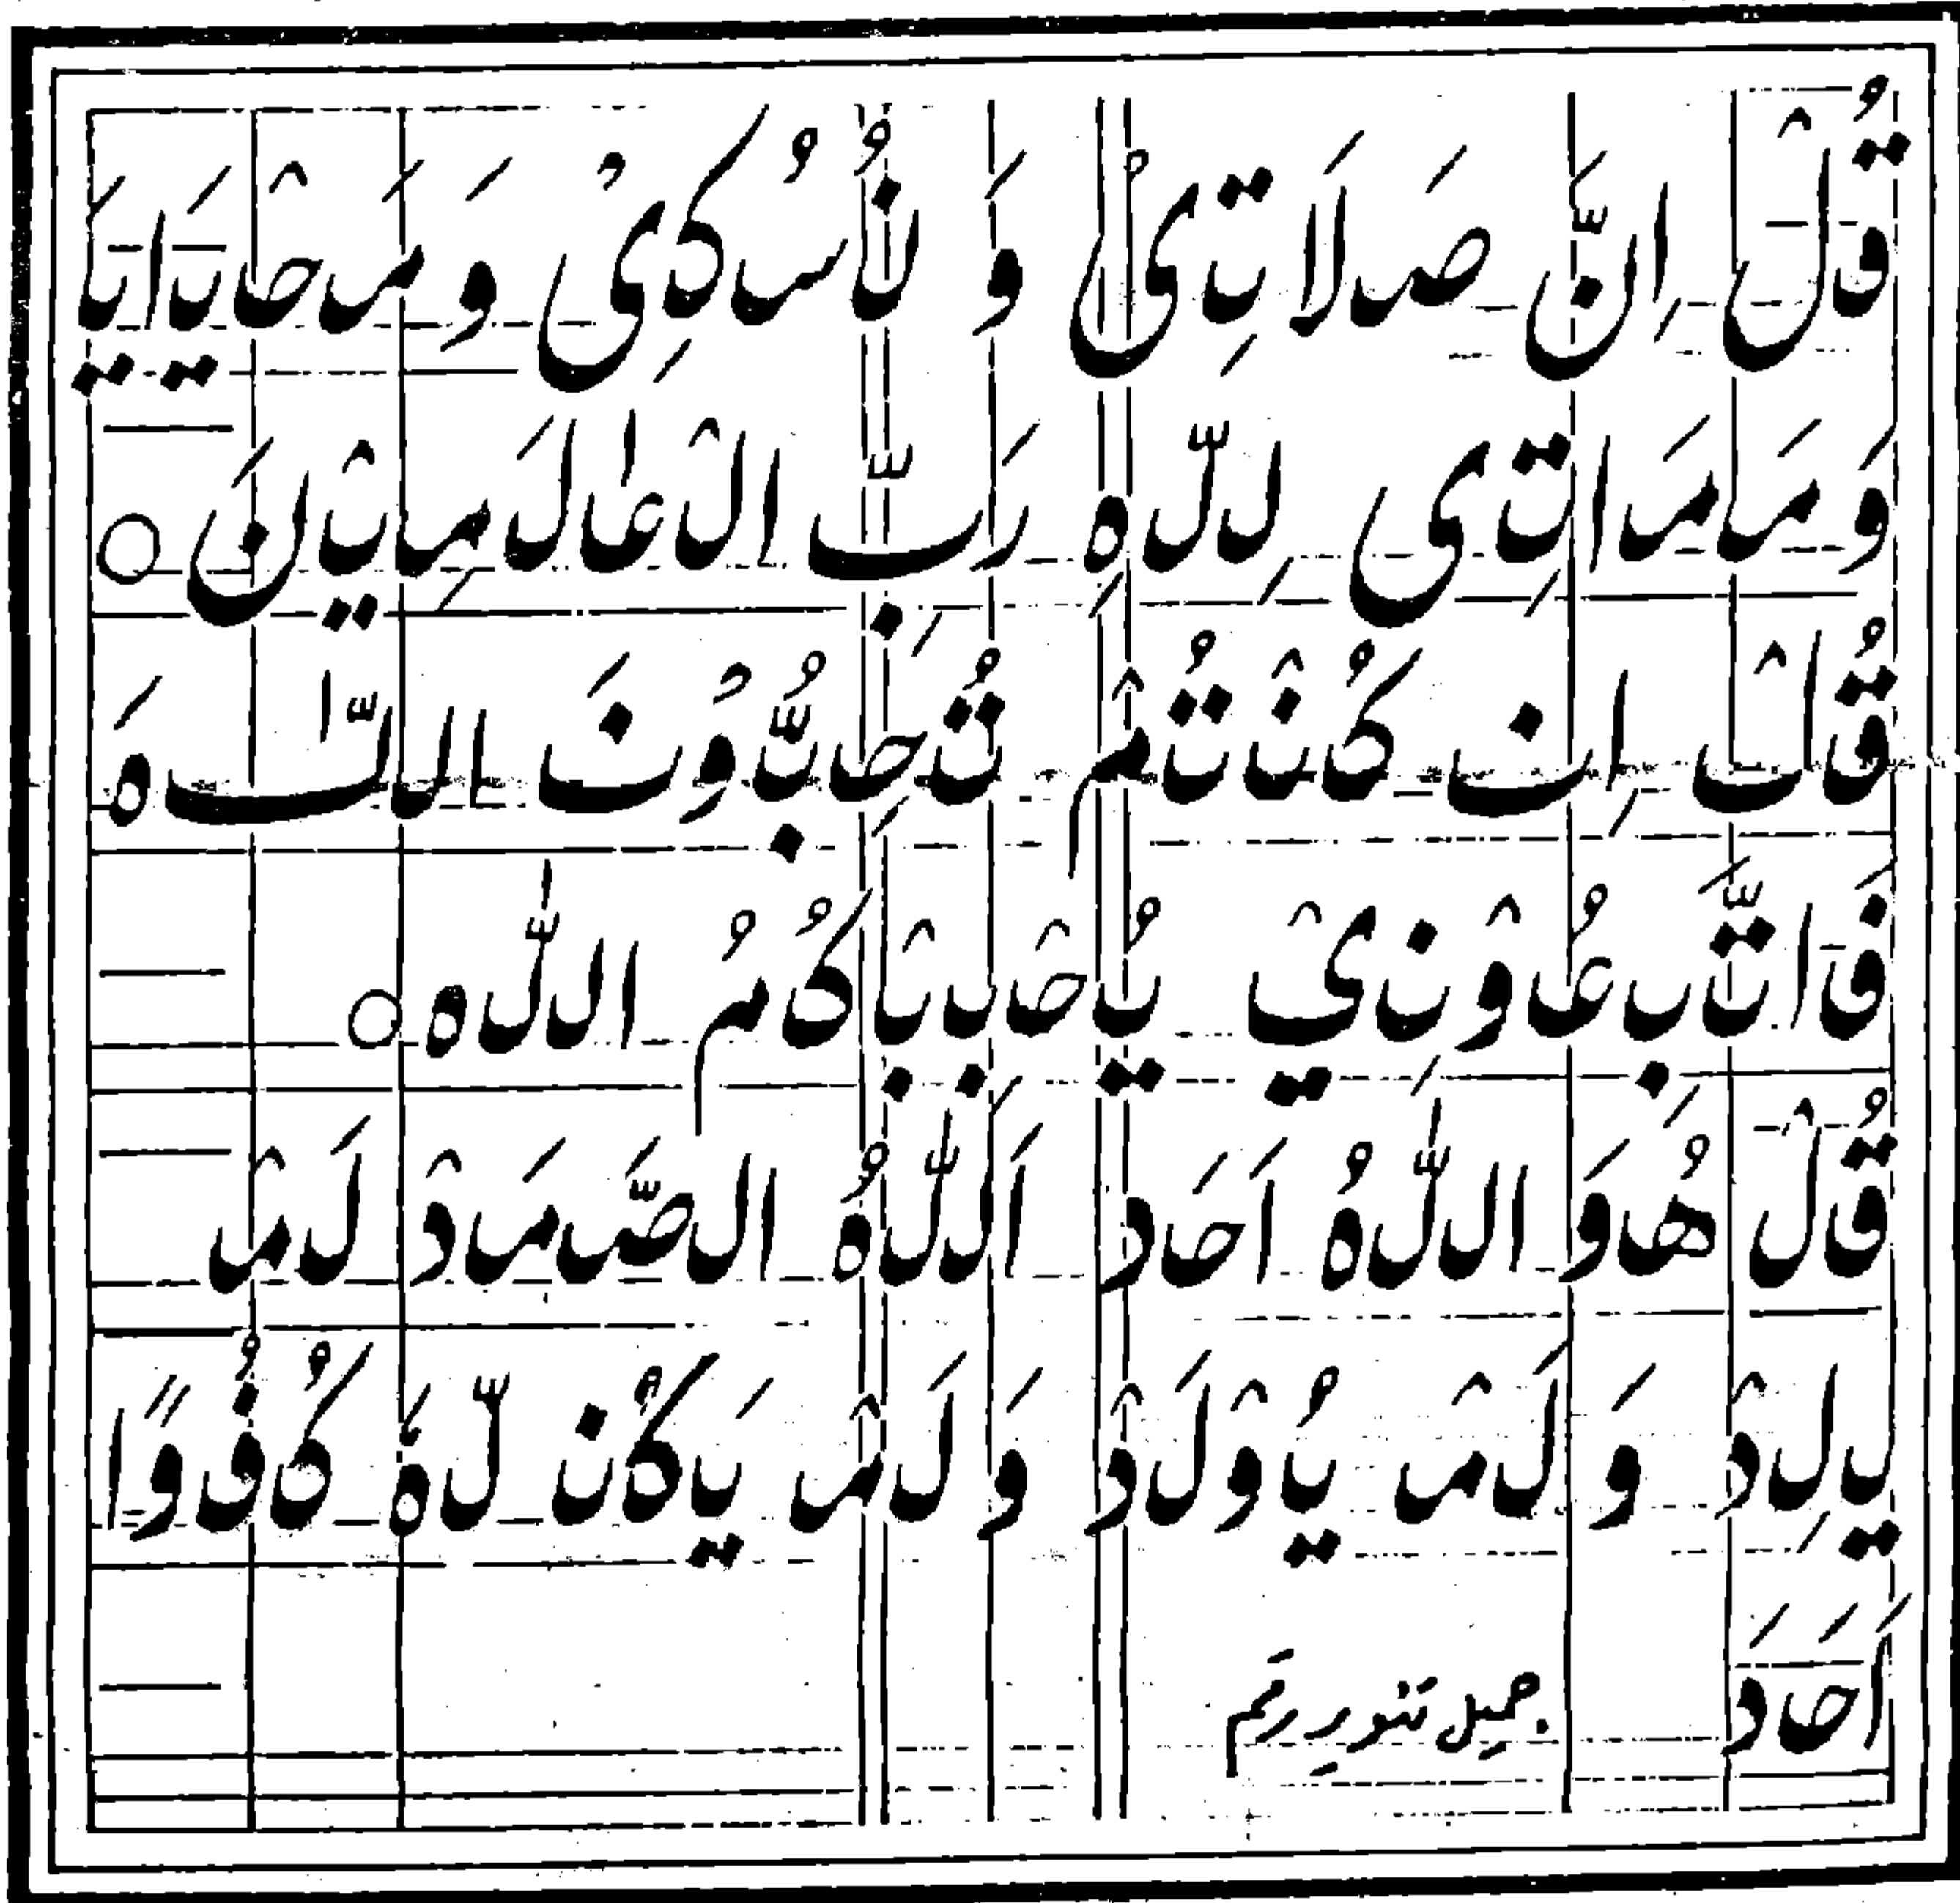 قُلْ اِنَّ صَلَاتِیْ وَ نُسُکِیْ وَ مَحْیَایَ
وَ مَمَاتِیْ لِلّٰہِ رَبِّ الْعٰلَمِیْنَ ○
قُلْ اِنْ کُنْتُمْ تُحِبُّوْنَ اللّٰہَ
فَاتَّبِعُوْنِیْ یُحْبِبْکُمُ اللّٰہ ○
قُلْ ھُوَ اللّٰہُ اَحَد اَللّٰہُ الصَّمَدْ لَمْ
یَلِدْ وَ لَمْ یُوْلَدْ وَ لَمْ یَکُنْ لَّہٗ کُفُوًا
اَحَدَ جمیل تنویر رقم